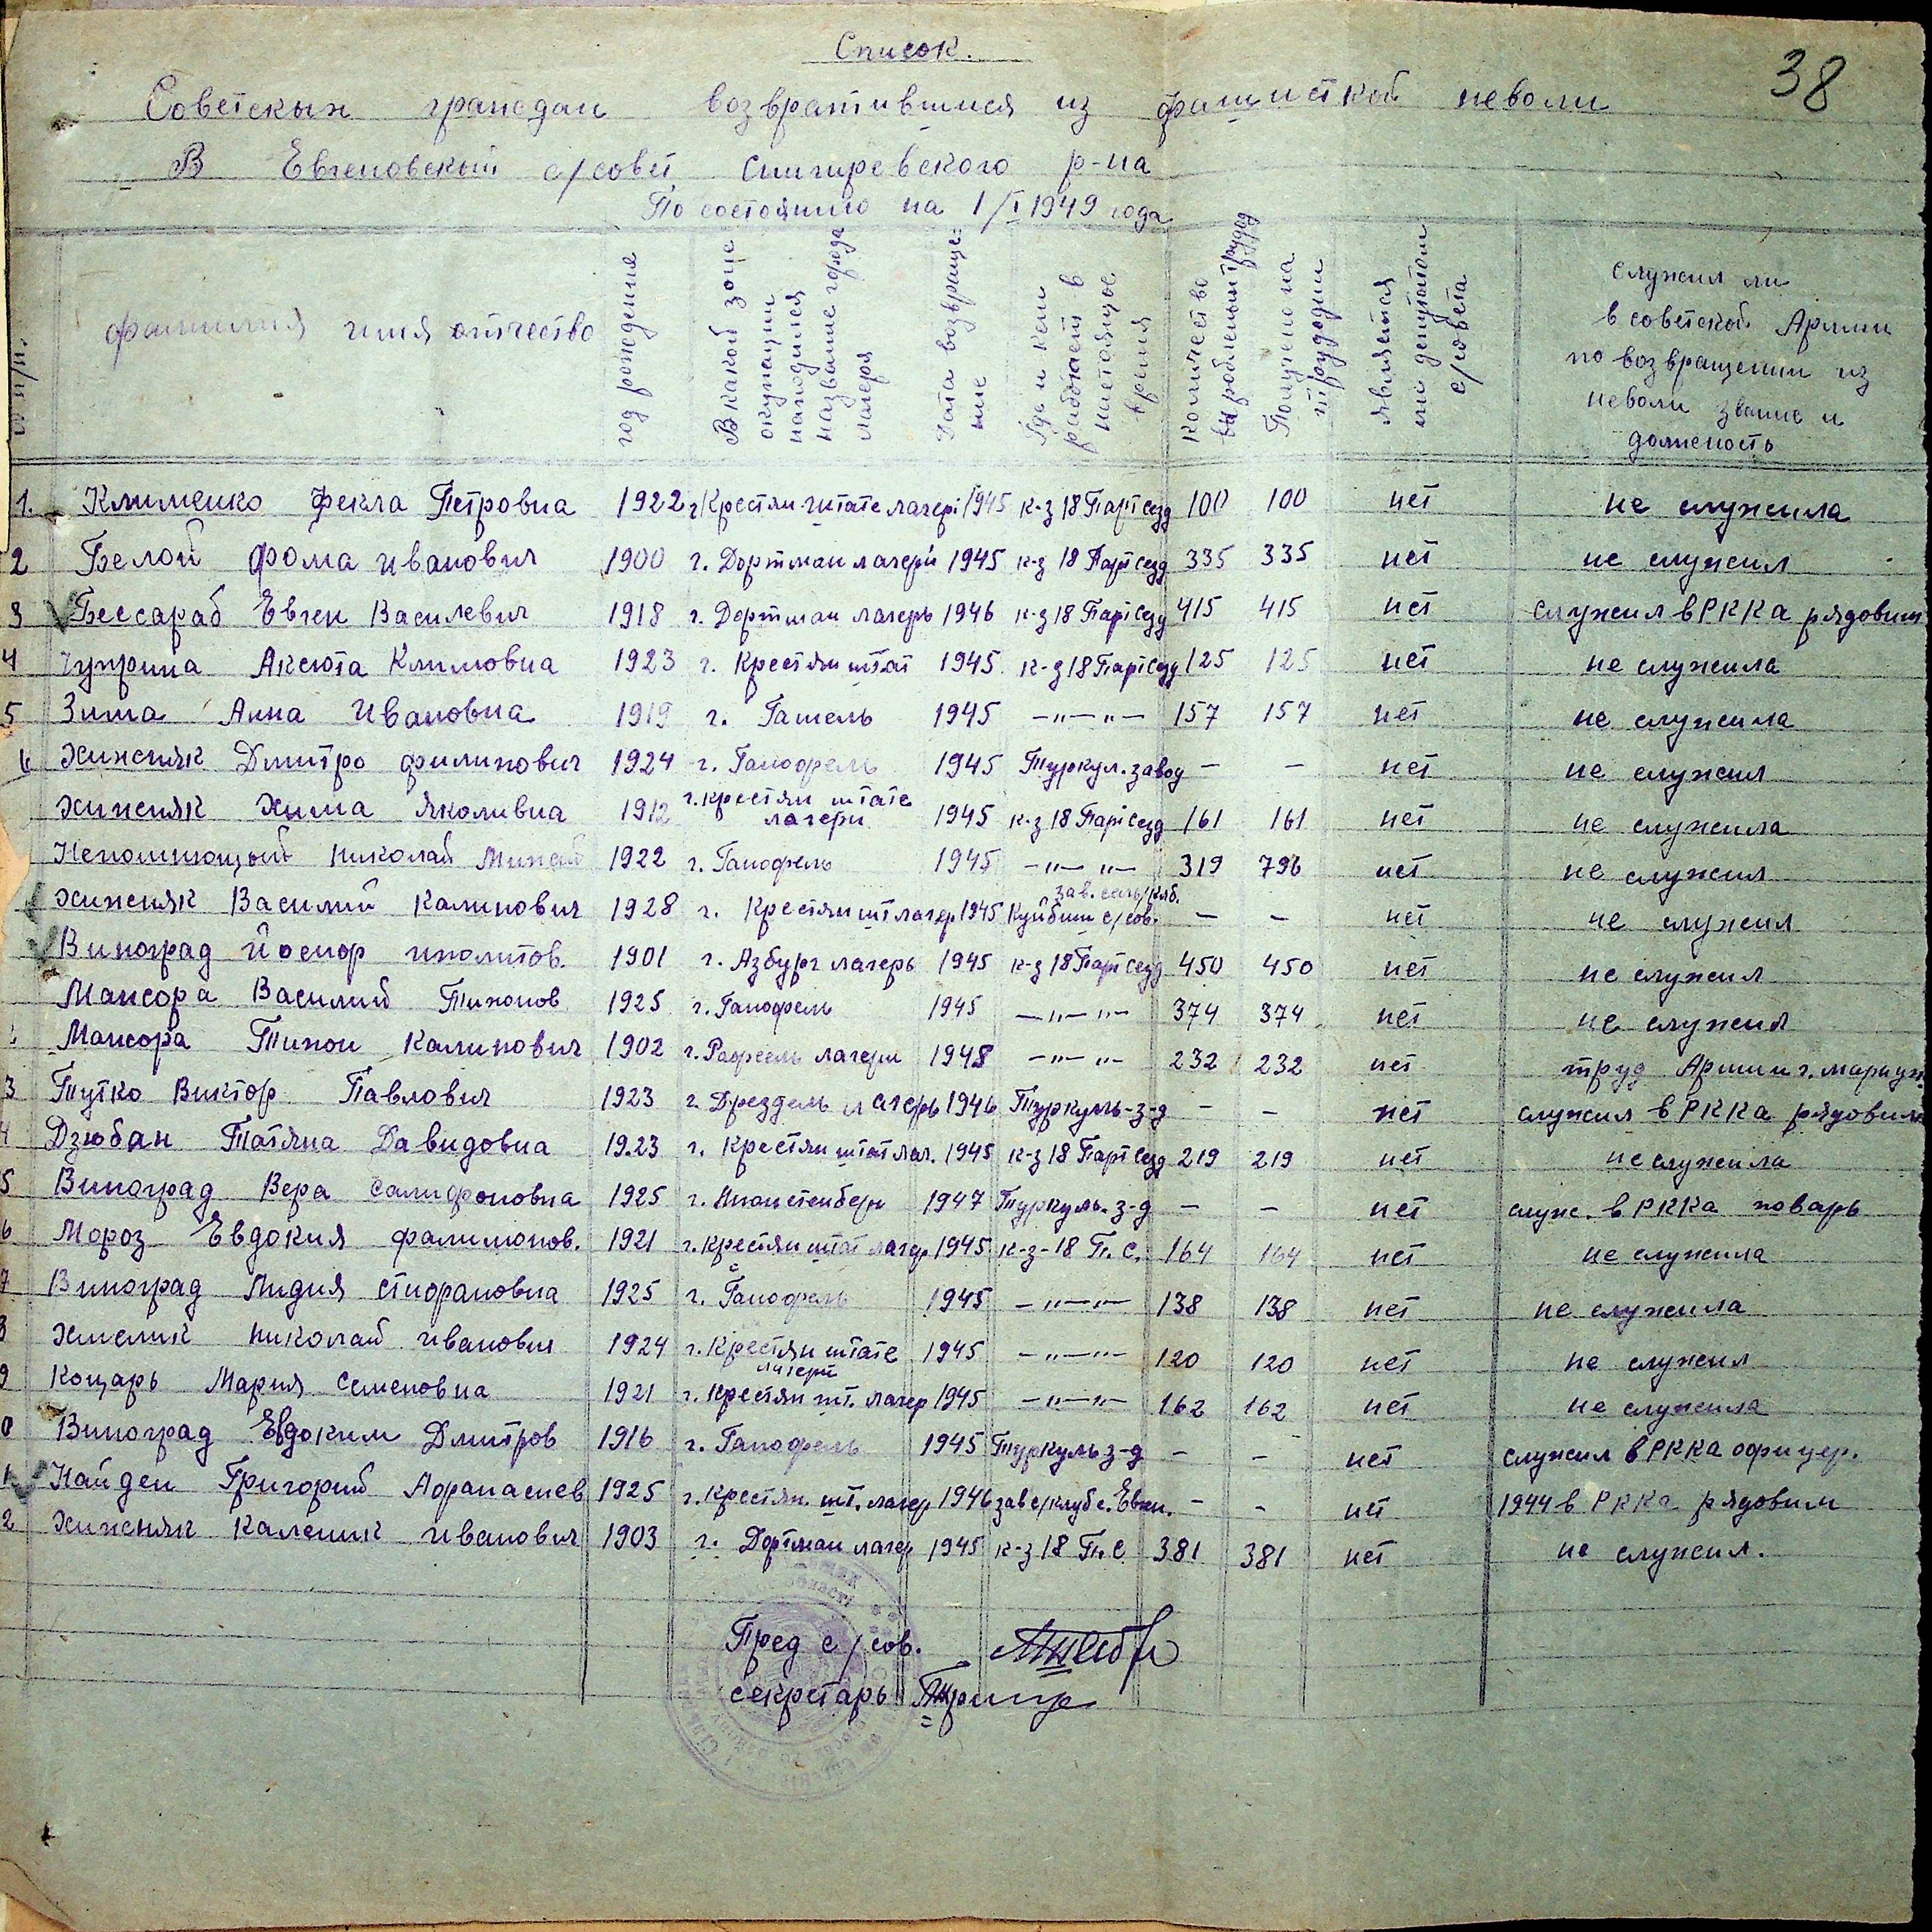 38
Список.
Советскых граждан возвратившися из фашисткой неволи
В Евгеновский с/совет Снигиревского р-на
По состоянию на 1/I 1949 года
№ п/п.
фамилия имя отчество
год рождения
В какой зоне
окупации
находился
название города
лагеря
Дата возвраще-
ние
Где и кем
работает в
настоящое
время
Количество
выроблених трудод
Полученона
трудодни
является
ли депутатом
с/совета
служил ли
в советской Армии
по возвращении из
неволи звание и
должность
1. Клименко Фекла Петровна 1922 г Крестян-штате лагері 1945 к-з 18 Парт сезд 100 100 нет не служила
2 Белой Фома Иванович 1900 г. Дортман лагерй 1945 к-з 18 Парт сезд 335 335 нет не служил
3 Бессараб Евген Василевич 1918 г. Дортман лагерь 1946 к-з 18 Парт сезд 415 415 нет служил в РККА рядовим
4 Чуприна Аксюта Климовна 1923 г. Крестян штат 1945 к-з 18 Парт сезд 125 125 нет не служила
5 Зима Анна Ивановна 1919 г. Гамель 1945 —"—"— 157 157 нет не служила
6 Хижняк Дмитро Филипович 1924 г. Ганофель 1945 Туркул. завод — — нет не служил
Хижняк Хима Яколивна 1912 г. крестян штате 1945 к-з 18 Парт сезд 161 161 нет не служила
лагери
Непомнющый Николай 1922 г. Ганофель 1945 —"— "— 319 796 нет не служил
зав. сель/клб.
Хижняк Василий Калинович 1928 г. Крестян шт лагер 1945 Куйбиш с/сов. — — нет не служил
Виноград Йосиф иполитов. 1901 г. Азбург лагерь 1945 к-з 18 Парт сезд 450 450 нет не служил
Мансора Василий Тихонов 1925 г. Ганофель 1945 —"— "— 374 374 нет не служил
Мансора Тихон Калинович 1902 г. лагери 1948 —"— "— 232 232 нет труд Армии г.
3 Тутко Виктор Павлович 1923 г. Дрездель лагерь 1946 Туркуль-з-д — — нет служил в РККА рядовим
4 Дзюбан Татяна Давидовна 1923 г. Крестян штат лаг. 1945 к-з 18 Парт сезд 219 219 нет не служила
5 Виноград Вера Салифоновна 1925 г. 1947 Туркуль. з-д — — нет служ. в РККА поварь
6 Мороз Евдокия Фалимонов. 1921 г. крестян штат лагер 1945 к-з-18 П. с. 164 164 нет не служила
7 Виноград Лидия Стифановна 1925 г. Ганофель 1945 —"— "— 138 138 нет не служила
8 Хмелик Николай Иванович 1924 г. Крестян штате 1945 —"— "— 120 120 нет не служил
лагерй
9 Кощарь Мария Семеновна 1921 г. Крестян шт. лагер 1945 —"— "— 162 162 нет не служила
0 Виноград Евдоким Дмитров 1916 г. Ганофель 1945 Туркуль з-д — — нет служил в РККА офицер.
1 Найден Григорий Афанасиев 1925 г. Крестян. шт. лагер 1946 зав с/клуб с. Евген. — — нет 1944 в РККА рядовим
2 Хижняк Каленик Иванович 1903 г. Дортман лагер 1945 к-з 18 П. С. 381 381 нет не служил.
Пред с/сов.
секретарь